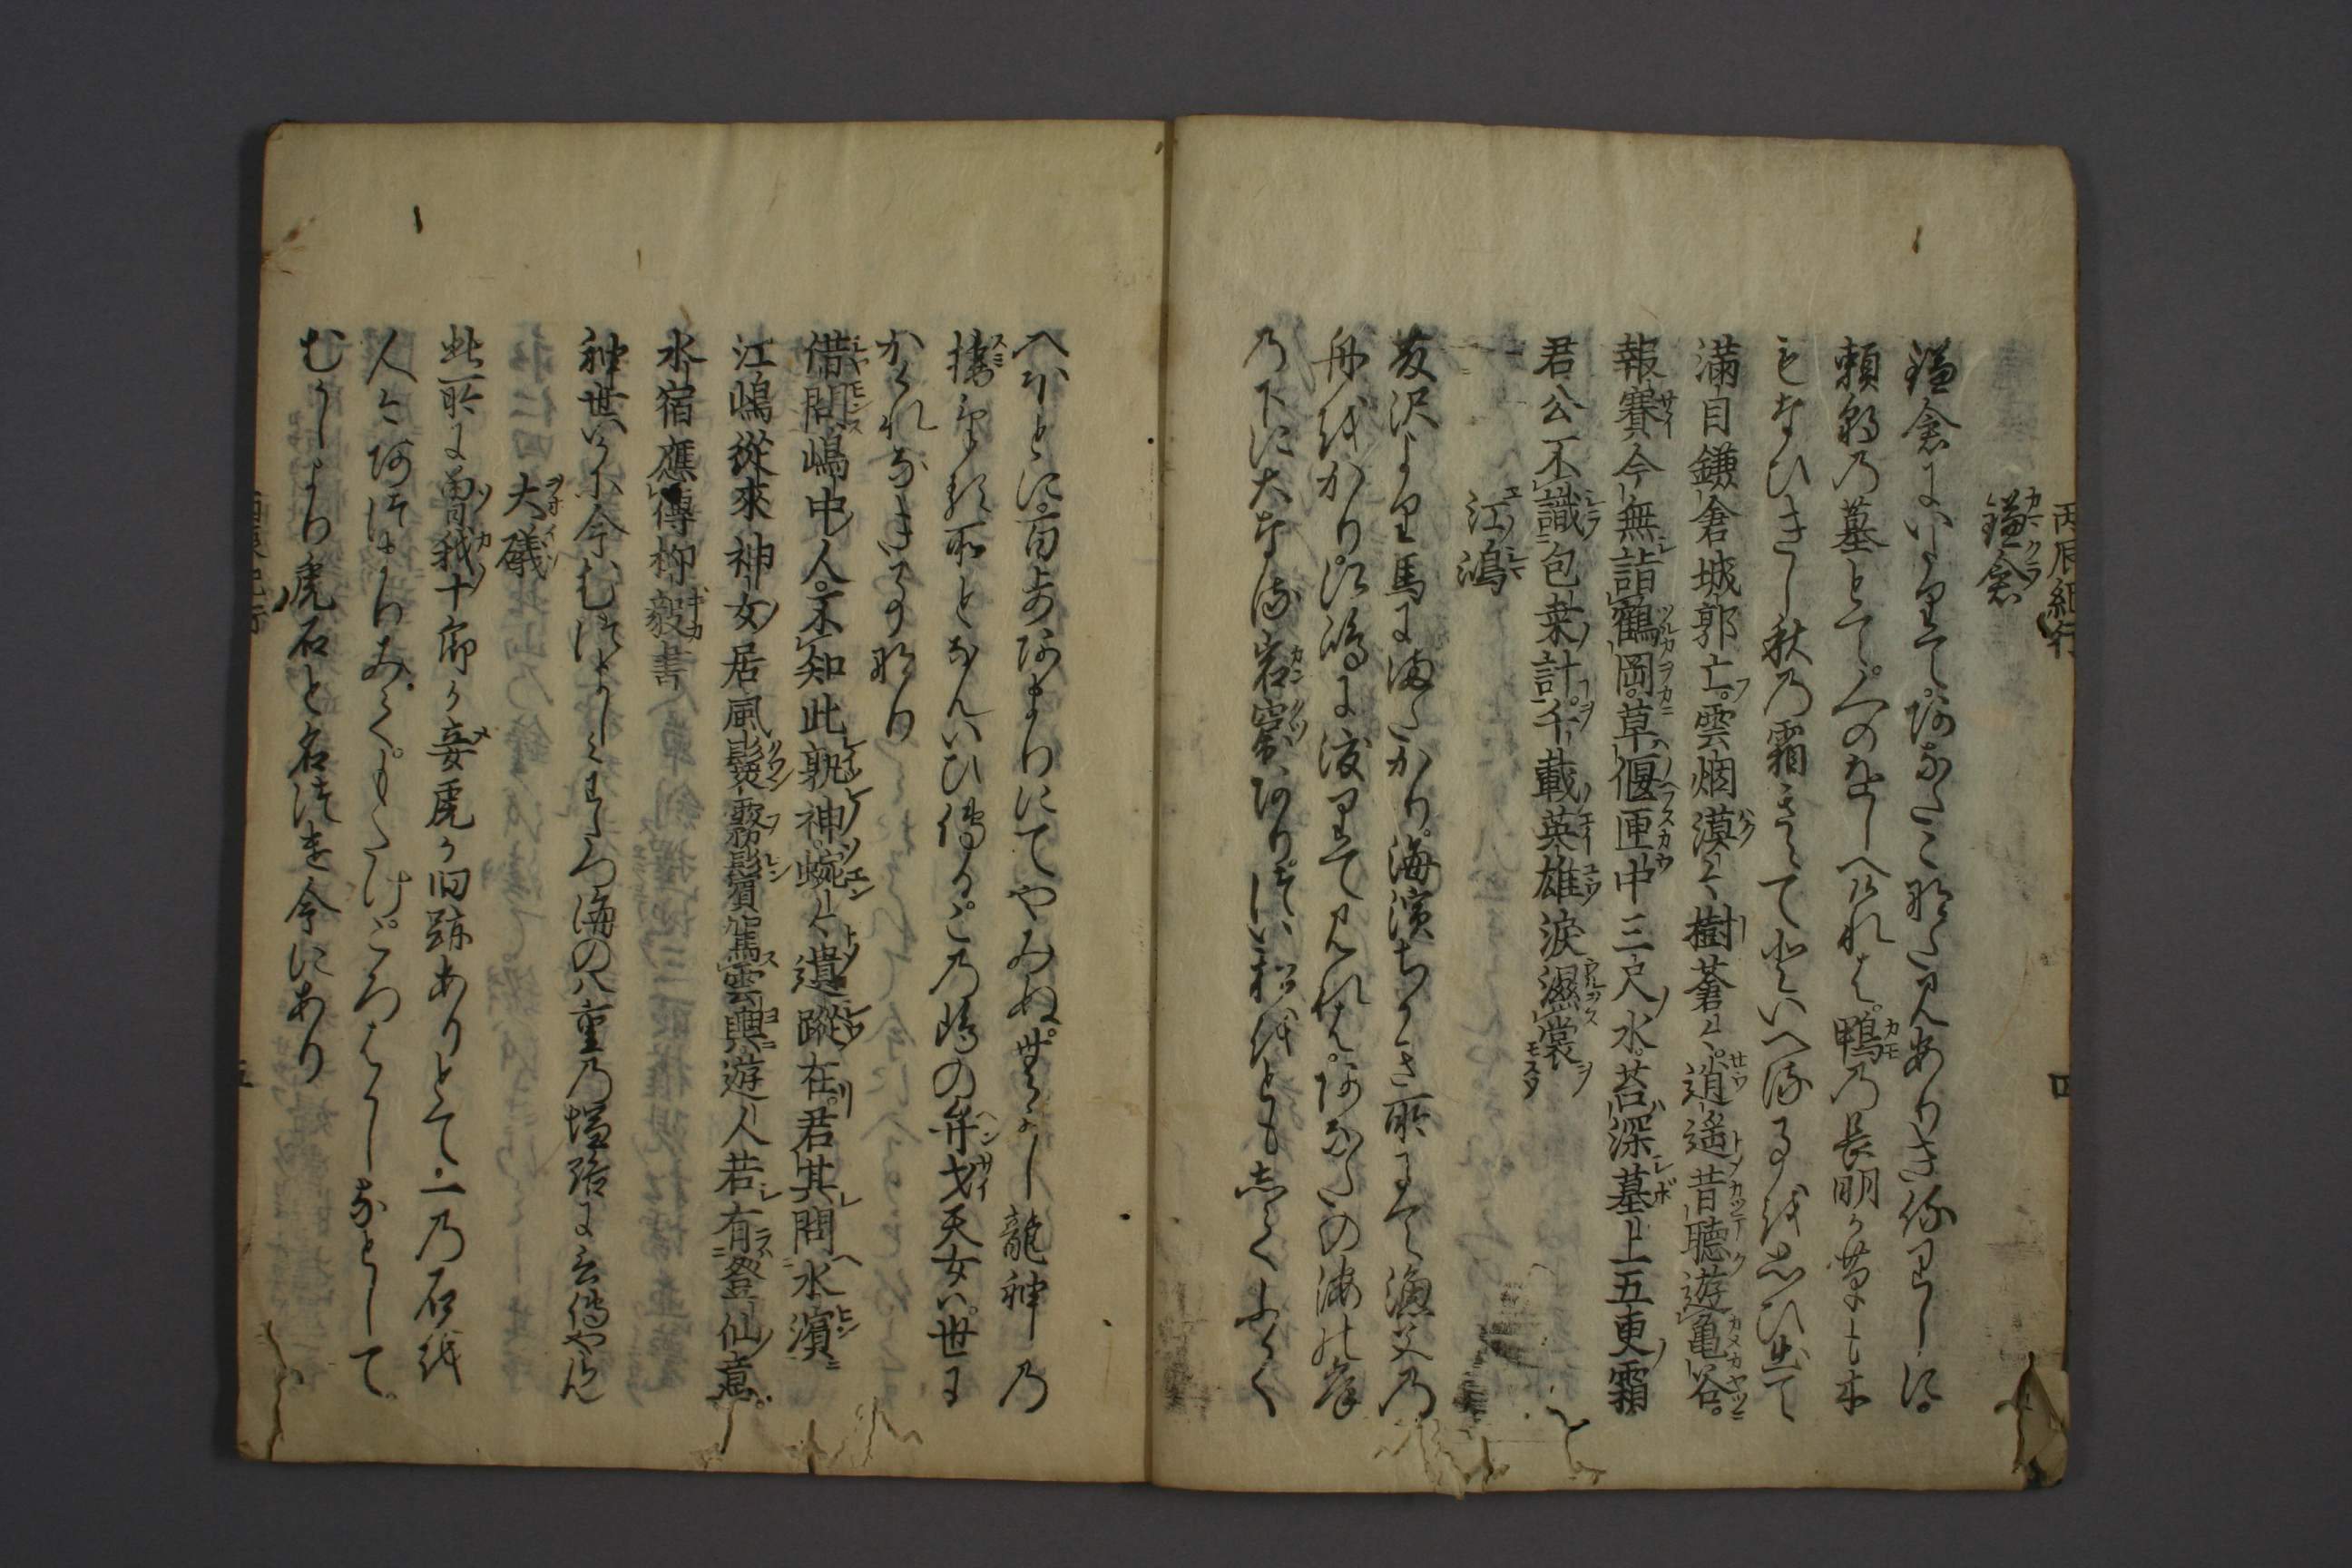 丙辰紀行
四
鎌倉
鎌倉にいたりて。あなたこなた見ありき侍りしに。
頼朝の墓とて。人のをしへければ。鴨の長明が草も木
もなひきし秋の霜きえてといへる事を思ひ出て
満目鎌倉城郭亡。雲烟漠々樹蒼々。逍遥昔聴遊亀谷。
報賽今無詣鶴岡。草偃匣中三尺水。苔深墓上五更霜
君公不識包桑計。千載英雄涙濕裳
江嶋
藤沢より馬にまたがり。海濱ちかき所にて漁父の
舟をかり。江嶋に渡りて見れば。あなたの海の岸
の下に大なる岩窟あり。たい松をともしふかく
へ行ほどに百歩あまりにてやみぬ。むかし龍神の
棲ける所となんいひ傳る。この嶋の弁才天女は。世に
かくれなき事なり
借問嶋中人。不知此孰神。蜿々遺蹤在。君其問水濱
江嶋從來神女居風鬟霧鬢駕雲輿遊人若有登仙意。
水宿應傳柳毅書
神世いかに今むつましみわたる海の八重の塩路に言傳やらん
大礒
此所に曽我十郎が妾虎が旧跡ありとて。一の石を
人々あつまりあくもたけころはかしなどして。
むかしより虎石と名つけ今にあり
五